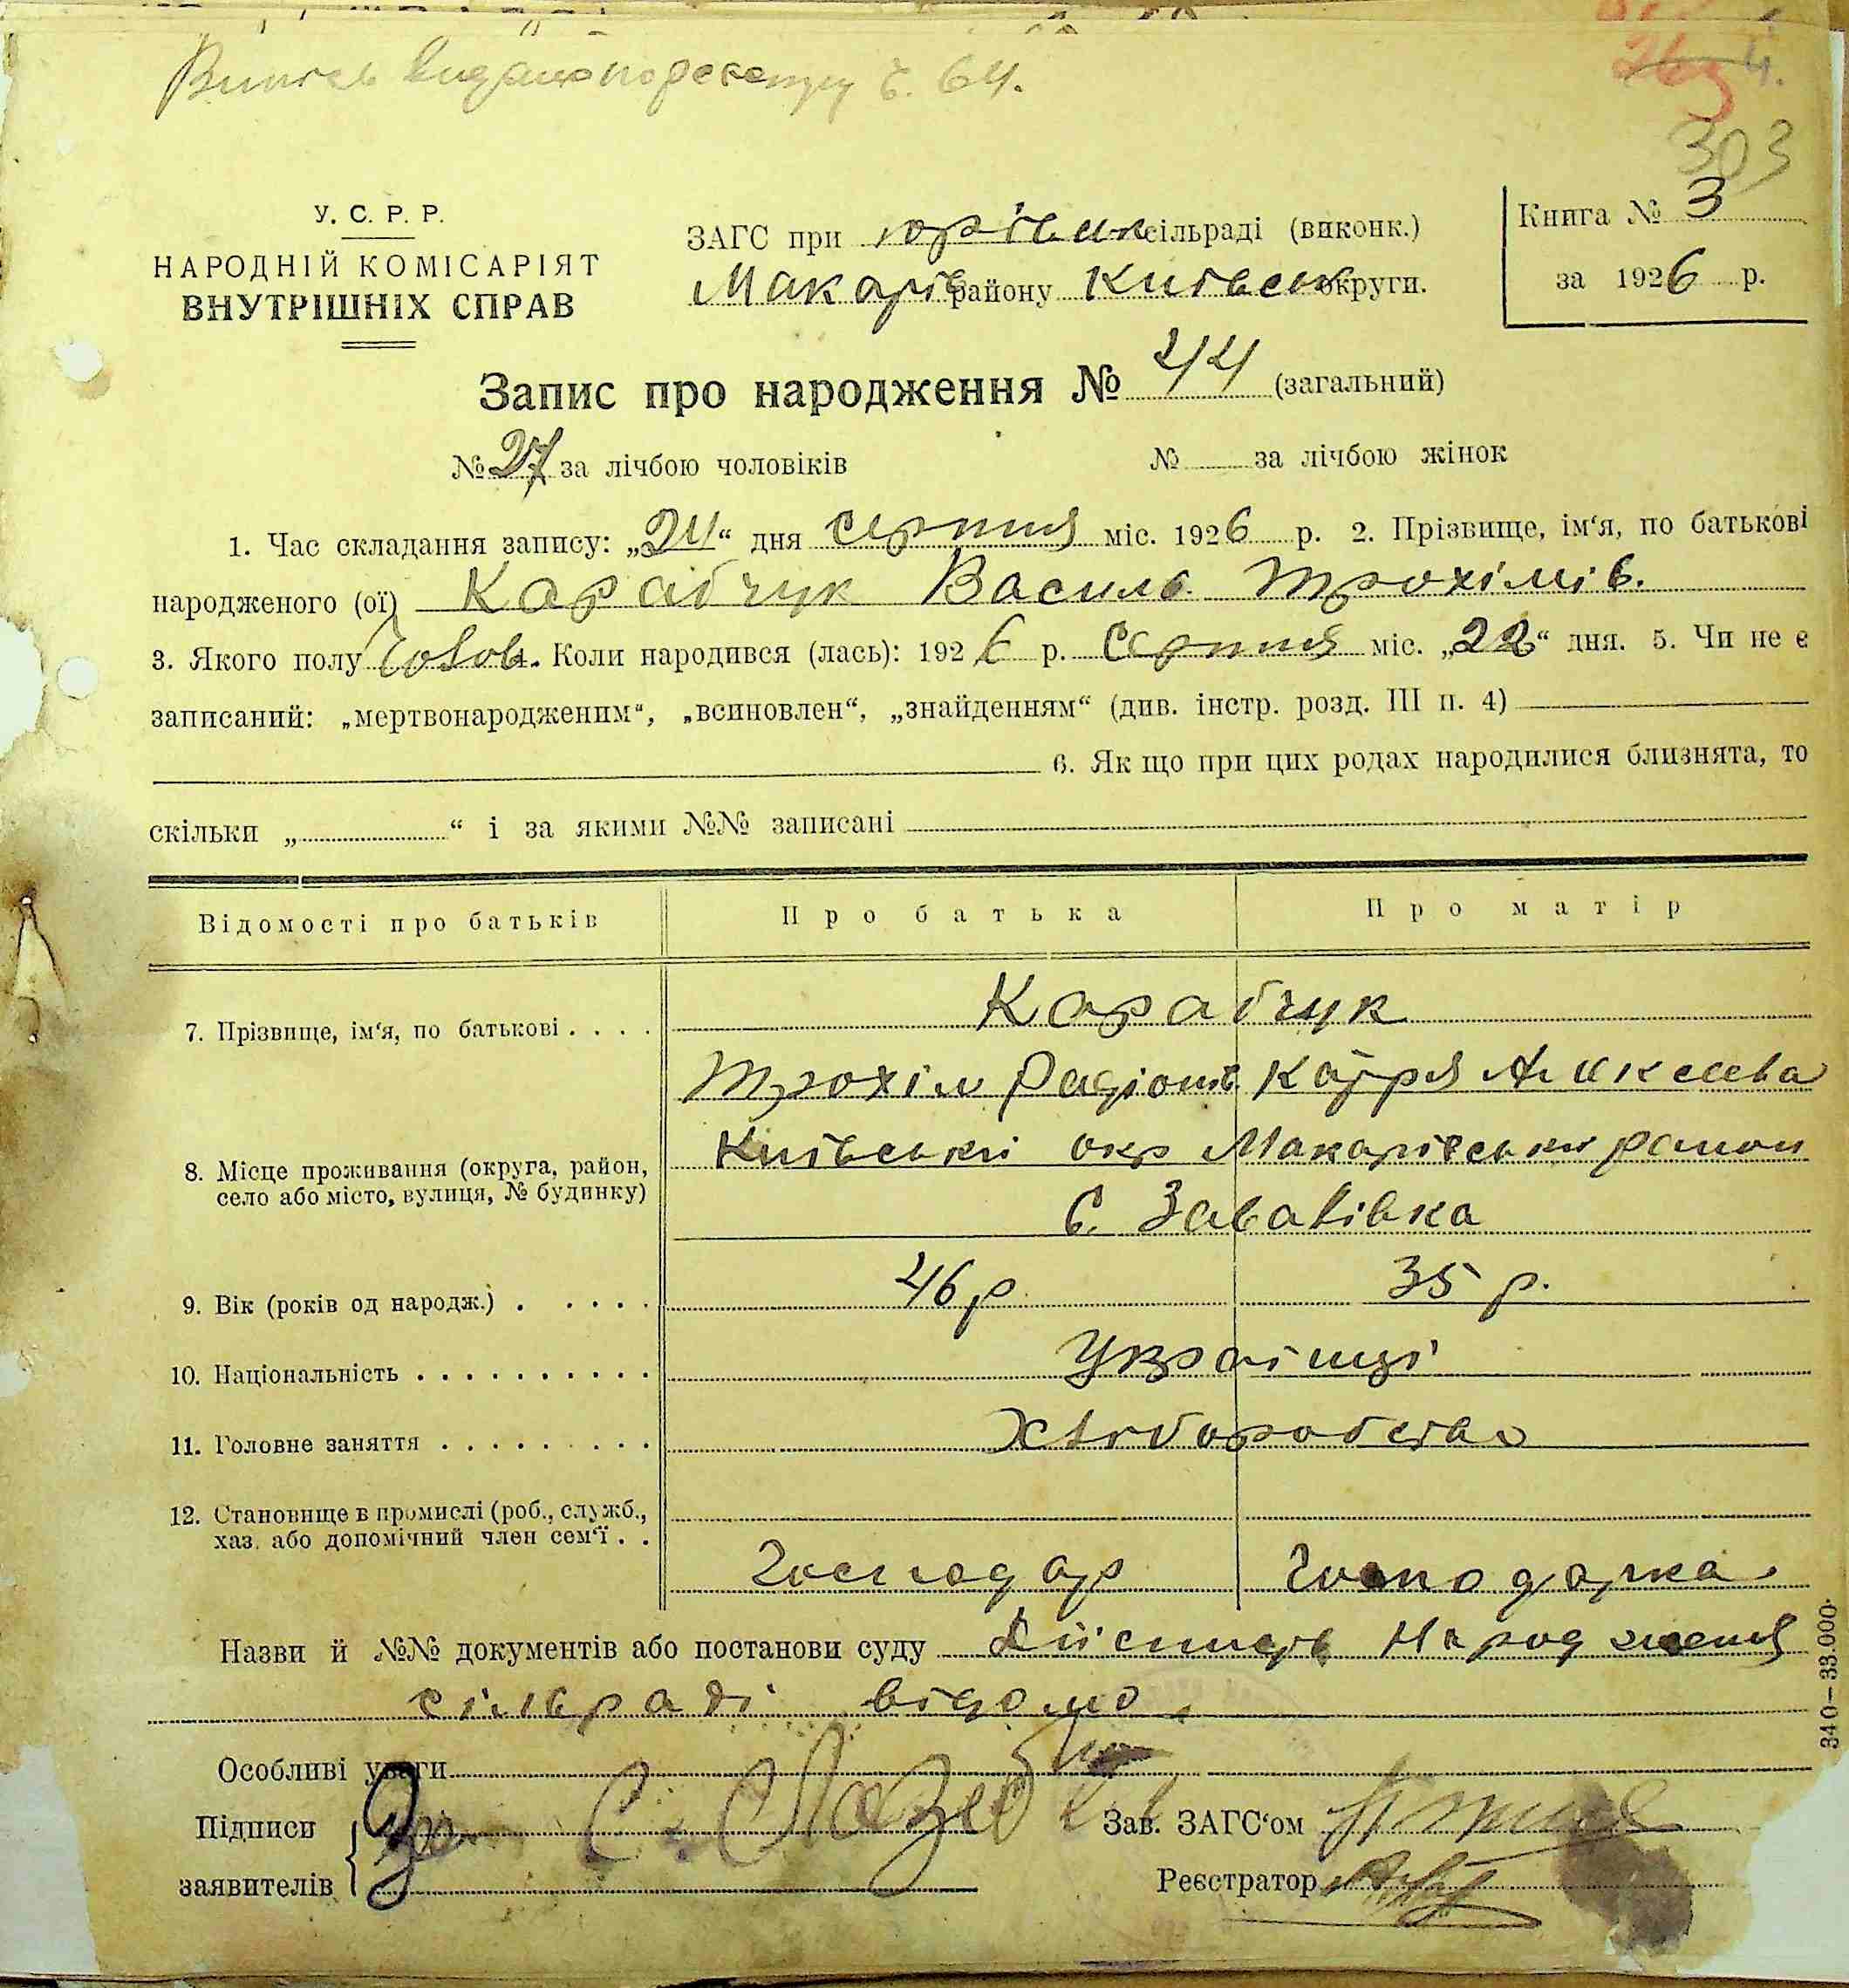 Випись видано по реєстру č. 64.
263 4.
303
У. С. Р. Р.
НАРОДНІЙ КОМІСАРІЯТ
ВНУТРІШНІХ СПРАВ
ЗАГС при Юрівск сільраді (виконк.)
Макарів району Київськ округи.
Книга № 3
за 1926 р.
Запис про народження № 44 (загальний)
№ 27 за лічбою чоловіків № за лічбою жінок
1. Час складання запису: „24“ дня Серпня міс. 1926 р. 2. Прізвище, ім'я, по батькові
народженого (ої) Карабчук Василь Трохімів.
3. Якого полу Чолов. Коли народився (лась): 1926 р. Серпня міс. „22“ дня. 5. Чи не є
записаний: „мертвонародженим“, „всиновлен“, „знайденням“ (див. інстр. розд. III п. 4)
6. Як що при цих родах народилися близнята, то
скільки „ “ і за якими №№ записані
Відомості про батьків Про батька Про матір
7. Прізвище, ім'я, по батькові . . . . Карабчук
Трохім Радіонів Катря Аликсеева
8. Місце проживання (округа, район, Київські окр Макарівськи район
село або місто, вулиця, № будинку) С. Завалівка
9. Вік (років од народж.) . . . . . 46 р 35 р.
10. Національність . . . . . . . . . . Українці
11. Головне заняття . . . . . . . . . Хліборобство
12. Становище в промислі (роб., служб.,
хаз. або допомічний член сем'ї . .
Господар Господарка
Назви й №№ документів або постанови суду Дійсність Народження
сільраді відомо.
Особливі уваги
Підписи
заявителів
За
Зав. ЗАГС'ом
Реєстратор
340—33.000.